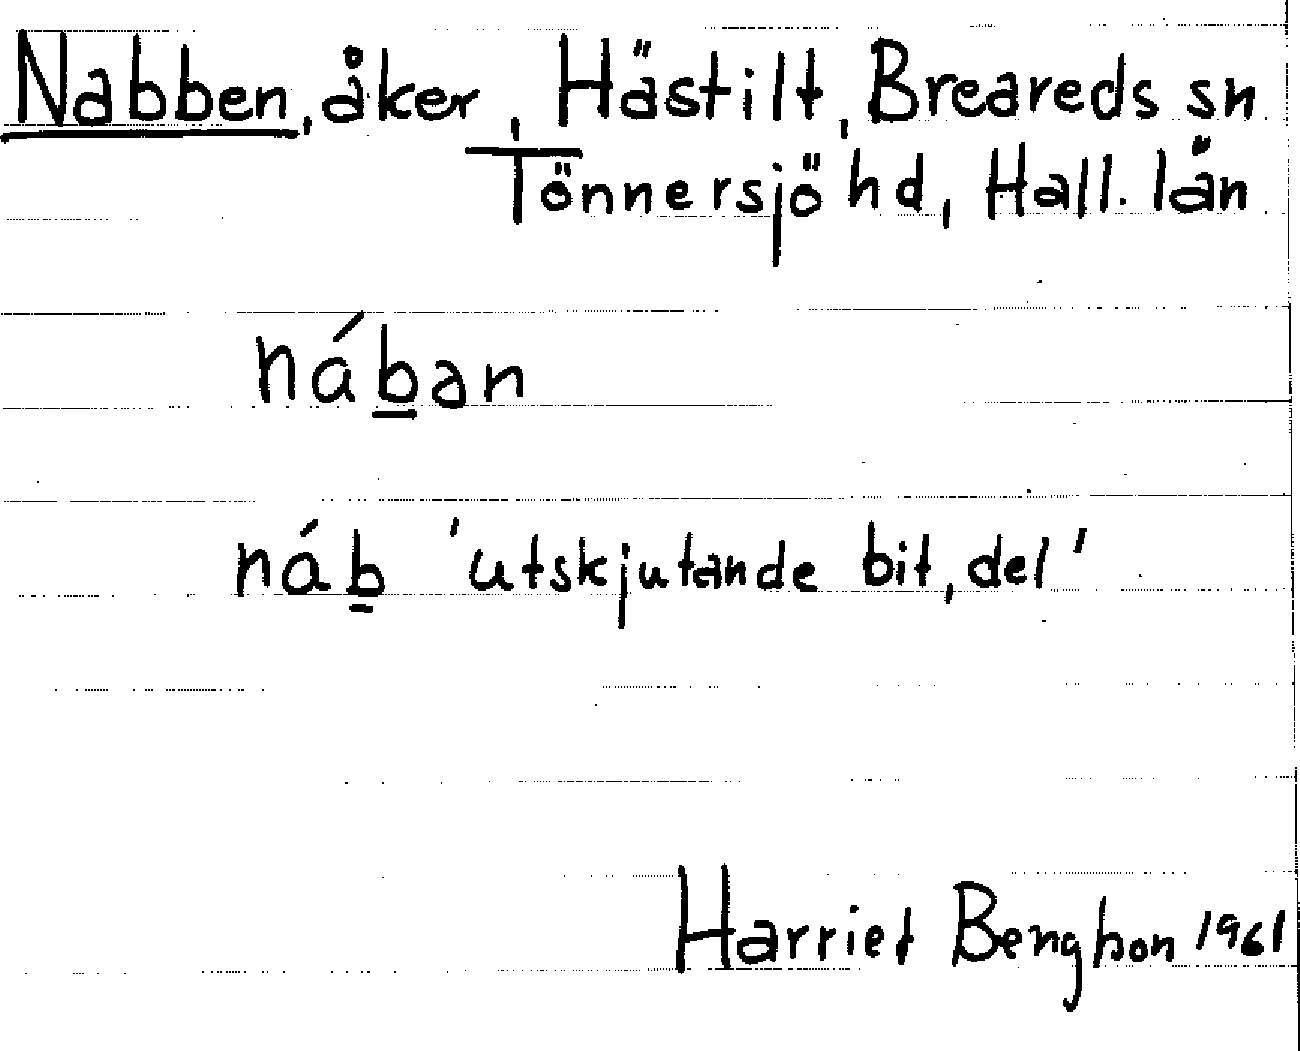 Nabben, åker, Hästilt, Breareds sn
Tönnersjö hd, Hall. län
nában
náb 'utskjutande bit, del'
Harriet Bengtson 1961